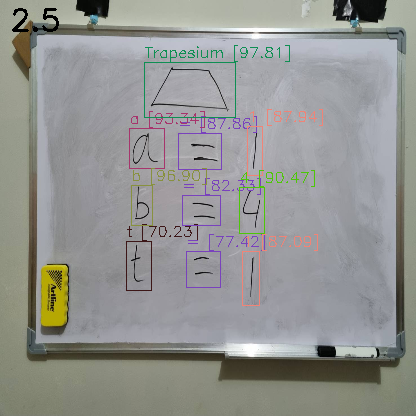 2.5
Trapesium [97.81]
a [93.34] = [87.86] [83.34]
a = 1
b [96.90] = [82.33] 4 [90.47]
b = 4
t [70.23] = [77.42] [37.09]
t = 1
Artline